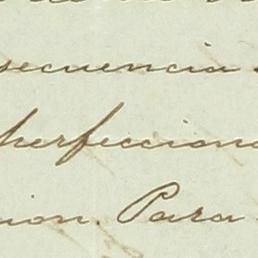 secuencia
perfeccion
cion. Para